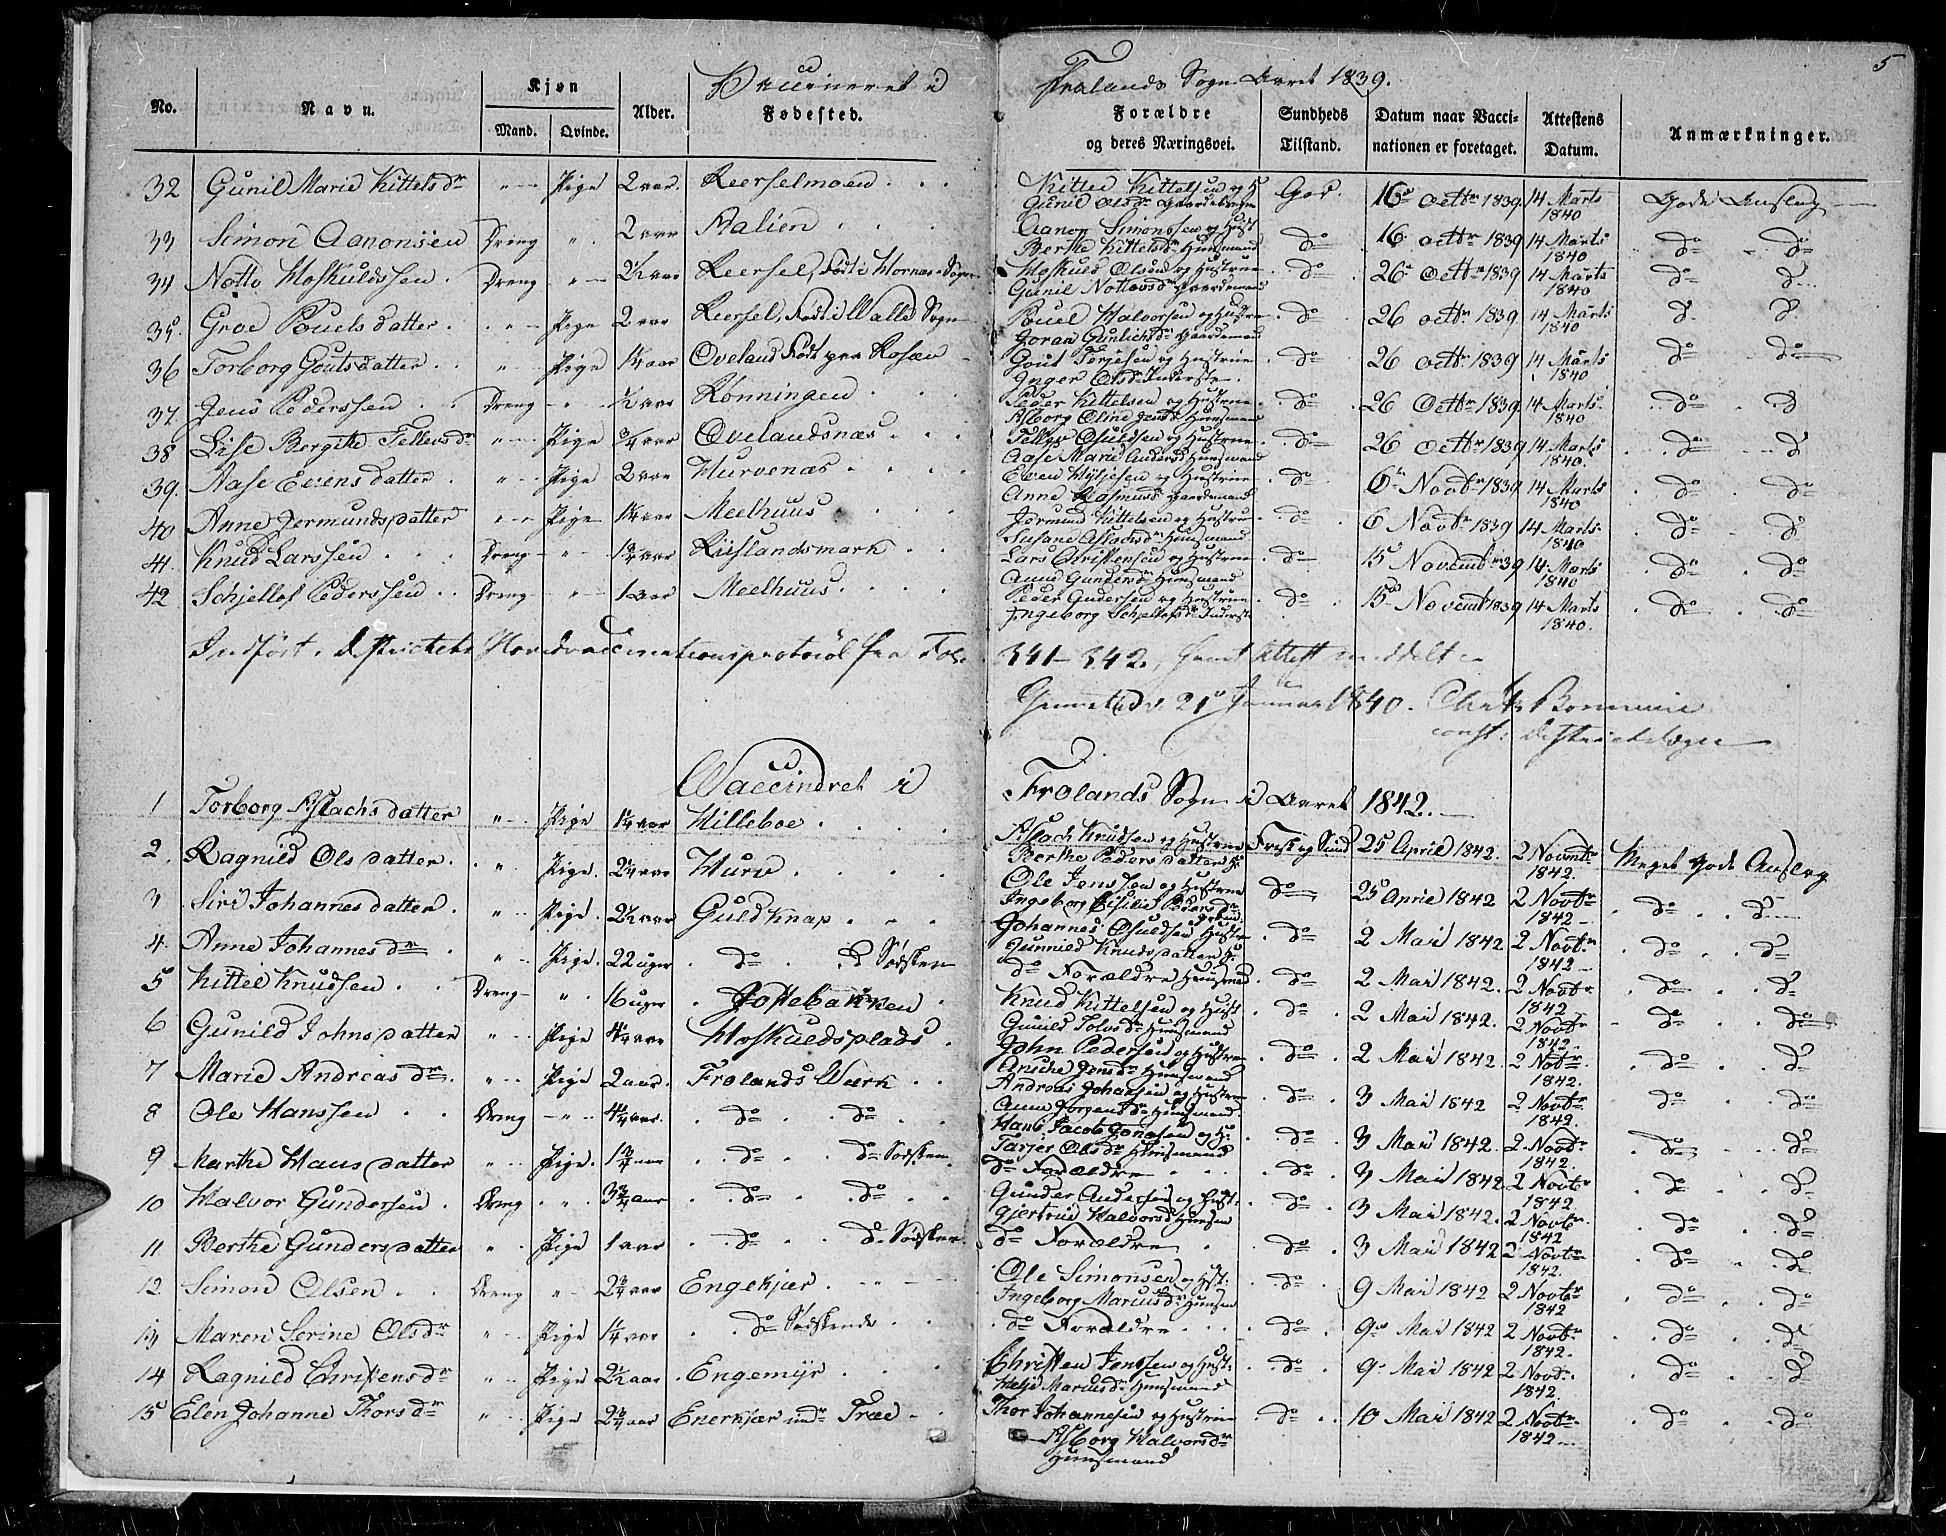 5
Vaccineret i Frolands Sogn Aaret 1839.
No. Navn. Kjøn Mand. Qvinde. Alder. Fødested. Forældre og deres Næringsvei. Sundheds Tilstand. Datum naar Vaccinationen er foretaget. Attestens Datum. Anmærkninger.
32 Gunil Marie Kittelsdr " Pige 2 aar. Reerselmoen Kittel Kittelsen og H Gunil Olsdr Gaardebruger God. 16de Octbr 1839. 14 Marts 1840 Gode Anslag
33 Simon Aanonsen Dreng " 2 aar Aalien Aanon Simonssen og Hust Berthe Kittelsdr Huusmand do 16 octbr 1839 14 Marts 1840 do do
34 Notto Hoskuldssen Dreng " 2½ aar Reersel, Født i Hornæs Sogn Hoskuld Olsen og Hustrue Gunil Nottovsdr Gaardemand do 26 Octbr 1839 14 Marts 1840 do do
35. Groe Pouelsdatter " Pige 2 aar Reersel, Født i Walle Sogn Pouel Halvorsen og Hustrue Joran Gunlichsdr Gaardemand do 26 octbr 1839 14 Marts 1840 do do
36 Torborg Goutsdatter " Pige 1¼ aar Oveland Født paa Rosæu Gout Torjesen og Hustrue Inger Olsdr Inderste do 26 octbr 1839 14 Marts 1840 do do
37 Jens Pederssen Dreng " ½ aar Rønningen Peder Kittelsen og Hustrue Asborg Oline Jensdr Huusmand do 26 Octbr 1839. 14 Marts. 1840 do do
38 Lise Bergithe Tellevsdr " Pige ¾ aar Ovelandsnæs Tellev Osuldsen og Hustrue Aase Marie Andersd Huusmand do 26 Octbr 1839 14 Marts 1840. do do
39. Aase Evensdatter " Pige 2 aar Hurvenæs Even Thyjesen og Hustrue Anne Rasmusd Gaardemand do 6te Novbr 1839 14 Marts 1840 do do
40 Anne Jermundsdatter " Pige 1¼ aar Meelhuus Jermund Kittelsen og Hustrue Susane Aslachsdr Huusmand do 6 Novbr 1839 14 Marts. 1840 do do
41. Knud Larssen Dreng " 1¾ aar Riislandsmark Lars Christensen og Hustrue Anne Gundersd Huusmand do 15 Novembr 39 14 Marts 1840 do do
42 Schjellof Pederssen Dreng " 1 aar Meelhuus Peder Andersen og Hustrue Ingeborg Schjellofsdr Inderste do 15de Novemb 1839 14 Marts 1840. do do
Indført i Districtets Hovedvaccinationsprotocol fra Fol. 341–342, samt Attest meddelt
Grimstad d. 21de Januar 1840.
const: Districtslæge
Vaccineret i Frolands Sogn i Aaret 1842.
1 Torborg Aslachsdatter " Pige 1¼ aar Hilleboe Aslach Knudsen og Hustrue Berthe Pedersdatter Frisk og Sund 25 April 1842. 2 Novembr 1842. Meget Gode Anslag
2. Ragnild Olsdatter " Pige. 2¼ aar Hurv Ole Jenssen og Hustrue Ingeborg Cisilie Pedersdr do 25 Aprie 1842 2 Novbr 1842 do do
3 Siri Johannesdatter " Pige. 2½ aar Guldknap Johannes Osuldsen Hustr Gunnild Knudsdatter do 2 Mai 1842 2 Novbr 1842 do do
4. Anne Johannesdr " Pige. 22 uger do d Sødsken do Forældre Huusmand do 2 Mai 1842. 2 Novbr 1842 do do
5 Kittel Knudsen Dreng " 16 uger Joskebakken Knud Kittelsen og Hust Gunild Tolvsdr Huusmand do 2 Mai 1842. 2 Novbr 1842. do do
6 Gunild Johnsdatter " Pige 4¼ aar Hoskuldsplads John Pedersen og Hustrue Ansche Jensdr Huusmand do 2 Mai 1842. 2 Novbr 1842. do do
7 Marie Andreasdr. " Pige 2 aar. Frolands Værk Andreas Johansen og Hustrue Anne Jørgensdr Huusmand do 3 Mai 1842 2 Novbr 1842. do do
8 Ole Hanssen Dreng " 4¼ aar. do do Hans Jacob Jonasen og H: Tarjer Olsdr Huusmand do 3 Mai 1842. 2 Novbr 1842. do do
9 Marthe Hansdatter " Pige. 1¾ aar do do Sødsken do Forældre do 3 Mai 1842 2 Novbr 1842 do do
10 Halvor Gundersen Dreng " 3¾ aar do do Gunder Andersen og Hust: Gjertrud Halvorsd Huusm do 3 Mai 1842. 2 Novbr. 1842 do do
11 Berthe Gundersdatter " Pige 1 aar do do Sødsken do Forældre do 3 Mai 1842 2 Novbr 1842. do do
12 Simon Olsen Dreng " 2¾ aar Engekjær Ole Simonsen og Hst: Ingeborg Mariusdr Huusm do 9 Mai 1842 2 Novbr 1842 do do
13 Maren Serine Olsdr " Pige 1¼ aar do Sødskende do Forældre do 9 Mai 1842 2 Novbr 1842. do do
14 Ragnild Christensdr " Pige 2½ aar Engemyr Christen Jenssen og Hust: Helje Mariusdr Huusmand do 9 Mai 1842 2 Novbr. 1842. do do
15 Elen Johanne Thorsdr " Pige 2¾ aar Enerkjær undr Træe Thor Johannesen og Hustrue Asborg Halvorsdr Huusmand do 10 Mai 1842 2 Novbr 1842 do do